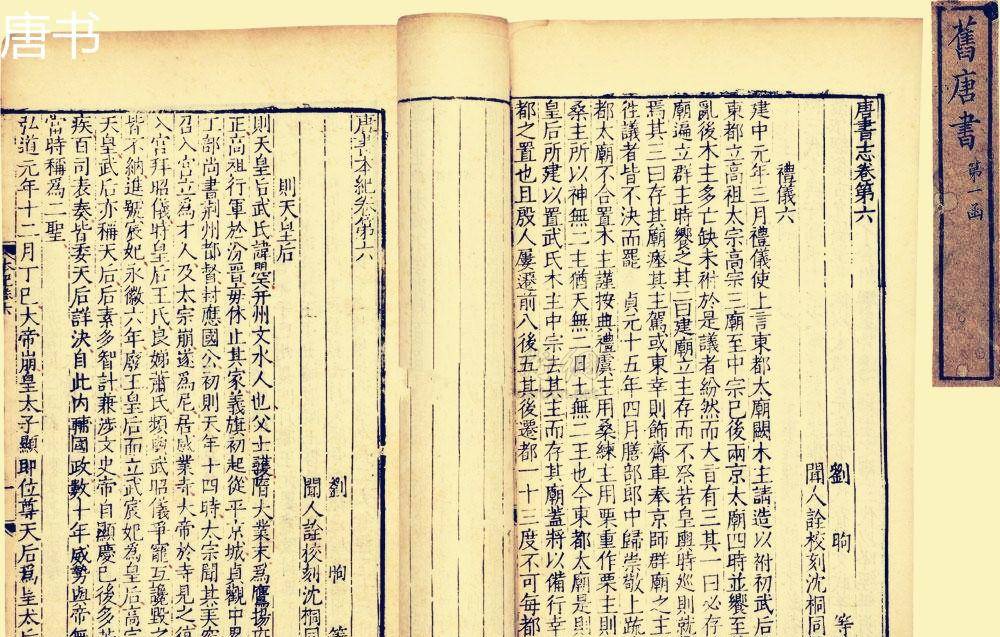 唐书
舊唐書
第一函
唐書志卷第六
劉昫等
聞人詮校刻沈桐同
禮儀六
建中元年三月禮儀使上言東都太廟闕木主請造以祔初武后
東都立高祖太宗高宗三廟至中宗已後兩京太廟四時並饗至
亂後木主多亡缺未祔於是議者紛然而大旨有三其一曰必存
廟遍立群主時饗之其二曰建廟立主存而不祭若皇輿時巡則就
焉其三曰存其廟瘞其主駕或東幸則飾齋車奉京師群廟之主
徃議者皆不決而罷 貞元十五年四月膳部郎中歸崇敬上疏
都太廟不合置木主謹按典禮虞主用桑練主用栗重作栗主則
桑主所以神無二主猶天無二日土無二王也今東都太廟是則
皇后所建以置武氏木主中宗去其主而存其廟蓋將以備行幸
都之置也且殷人屢遷前八後五其後遷都一十三度不可每都
唐書本紀卷第六
劉昫等
聞人詮校刻沈桐同
則天皇后
則天皇后武氏諱曌并州文水人也父士彠隋大業末爲鷹揚府
正高祖行軍於汾晉每休止其家義旗初起從平京城貞觀中累
丁部尚書荆州都督封應國公初則天年十四時太宗聞其美容
召入宮立爲才人及太宗崩遂爲尼居感業寺大帝於寺見之復
入宮拜昭儀時皇后王氏良娣蕭氏頻與武昭儀爭寵互讒毀之
皆不納進號宸妃永徽六年廢王皇后而立武宸妃爲皇后高宗
天皇武后亦稱天后后素多智計兼涉文史帝自顯慶已後多苦
疾百司表奏皆委天后詳決自此內輔國政數十年威勢與帝無
當時稱爲二聖
弘道元年十二月丁巳大帝崩皇太子顯即位尊天后爲皇太后